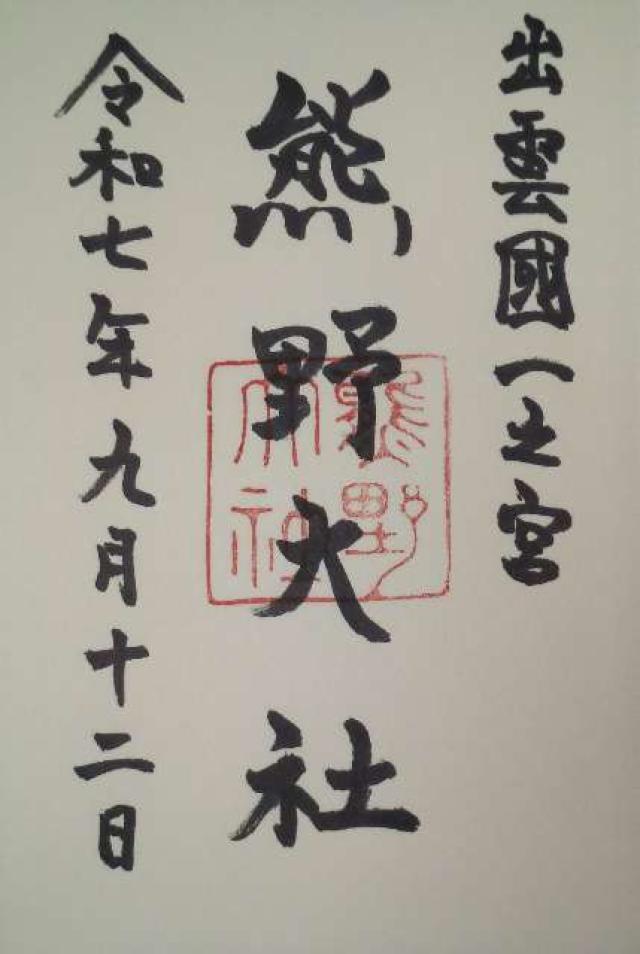 出雲國一之宮
熊野大社
熊野大社
令和七年九月十二日